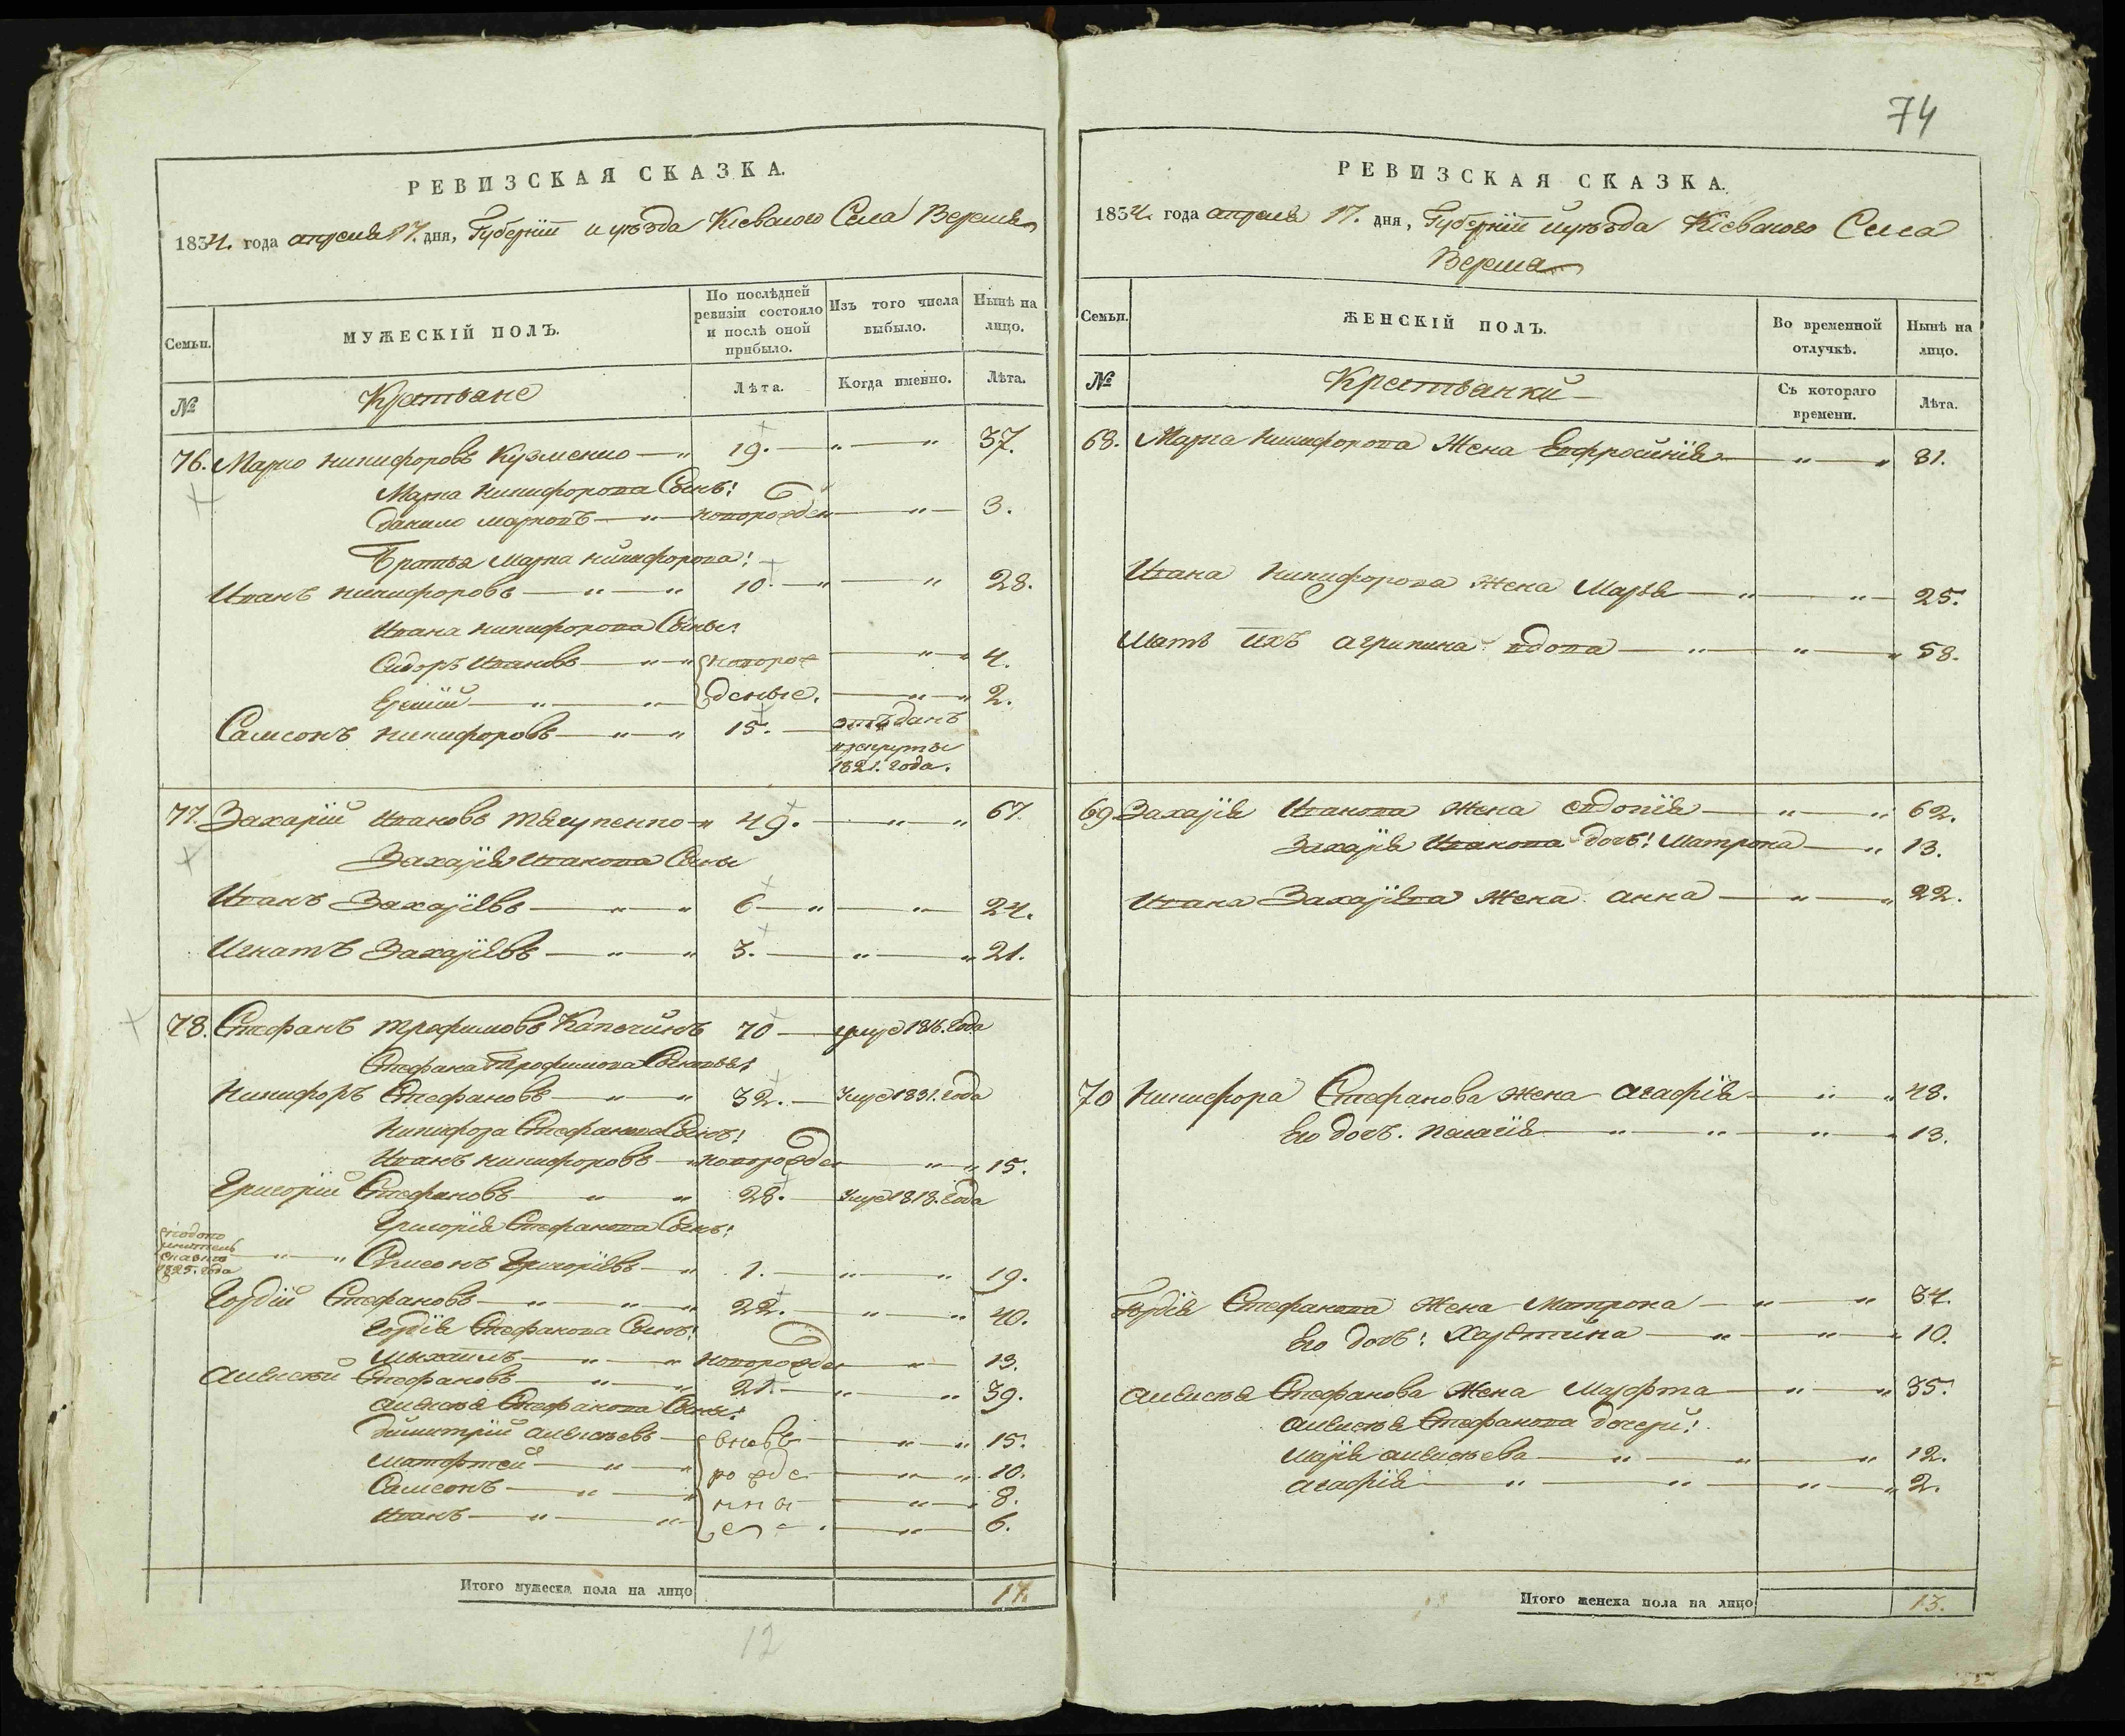 74
РЕВИЗСКАЯ СКАЗКА.
1834. года апреля 17. дня, Губернии и уѣзда Кіевъского Села
МУЖЕСКІЙ ПОЛЪ.
Семьи.
По послѣдней ревизіи состояло и послѣ оной прибыло.
Изъ того числа выбыло.
Нынѣ на лицо.
№
Крестьяне
Лѣта.
Когда именно.
Лѣта.
76. Марко Никифоровъ Кузменко — 19. — 37.
Марка Никифорова Сынъ:
Данило Марковъ — новорожден — 3.
Братья Марка Никифорова:
Иванъ Никифоровъ — 10 — 28.
Ивана Никифорова Сыны:
Сидоръ Ивановъ — новорож — 4.
деные. — 2.
Самсонъ Никифоровъ — 15. — отъданъ
рекруты
1821. года.
77. Захарій Ивановъ — 49. — 67
Захарія Иванова Сыны
Иванъ Захаріевъ — 6 — 24.
Игнатъ Захаріевъ — 3. — 21.
78. Стефанъ Трофимовъ 70 — умре 1816. Года
Стефана Трофимова Сыновья:
Никифоръ Стефановъ — 32. — Умре 1831. года
Никифора Стефанова Сынъ:
Иванъ Никифоровъ — новорожден — 15.
Григорій Стефановъ — 28. — Умре 1818. Года
Григорія Стефанова Сынъ:
1825. года
Самсонъ Григоріевъ — 1. — 19.
Гордій Стефановъ — 22. — 40.
Гордія Стефанова Сынъ:
Мыхаилъ — новорожден — 13.
Алексѣй Стефановъ — 21. — 39.
Алексѣя Стефанова Сыны:
Димитрій Алексѣевъ — вновь — 15.
Матфтей — рожде — 10.
Самсонъ — нны — 8.
Иванъ — е — 6.
Итого мужеска пола на лицо 17.
12
РЕВИЗСКАЯ СКАЗКА.
1834. года апреля 17. дня, Губернии и уѣзда Кіевъского Села
Семьи.
ЖЕНСКІЙ ПОЛЪ.
Во временной отлучкѣ.
Нынѣ на лицо.
№
Крестьянки
Съ котораго времени.
Лѣта.
68. Марка Никифорова Жена Евфросинія — 31.
Ивана Никифорова Жена Марья — 25.
Мать ихъ Агрипина вдова — 58.
69 Захарія Иванова Жена Евдокія — 62.
Захарія Иванова дочь: Матрона — 13.
Ивана Захаріева Жена Анна — 22.
70 Никифора Стефанова Жена Агафія — 48.
Его дочь. Пелагія — 13.
Гордія Стефанова Жена Матрона — 34.
Его дочь: Харѣтина — 10.
Алексѣя Стефанова Жена Марфта — 35.
Алексѣя Стефанова дочери:
Марія Алексѣева — 12.
Агафія — 2.
Итого женска пола на лицо 13.